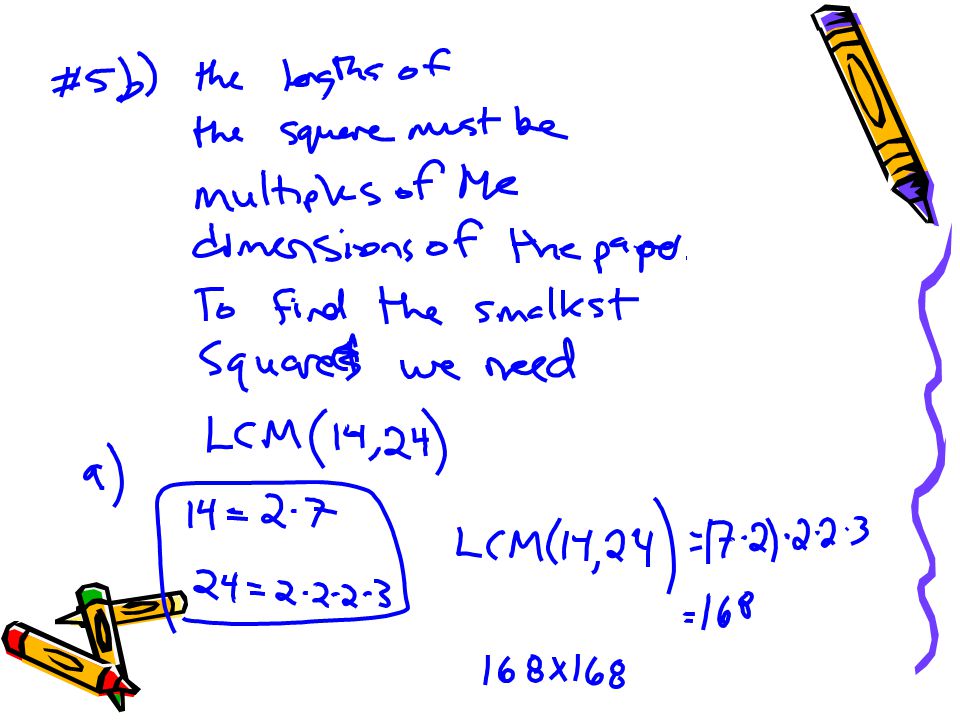 #5b) the lengths of
the square must be
multiples of the
dimensions of the paper.
To find the smallest
square we need
LCM(14,24)
a)
14 = 2·7
24 = 2·2·2·3
LCM(14,24) = (7·2)·2·2·3
= 168
168x168